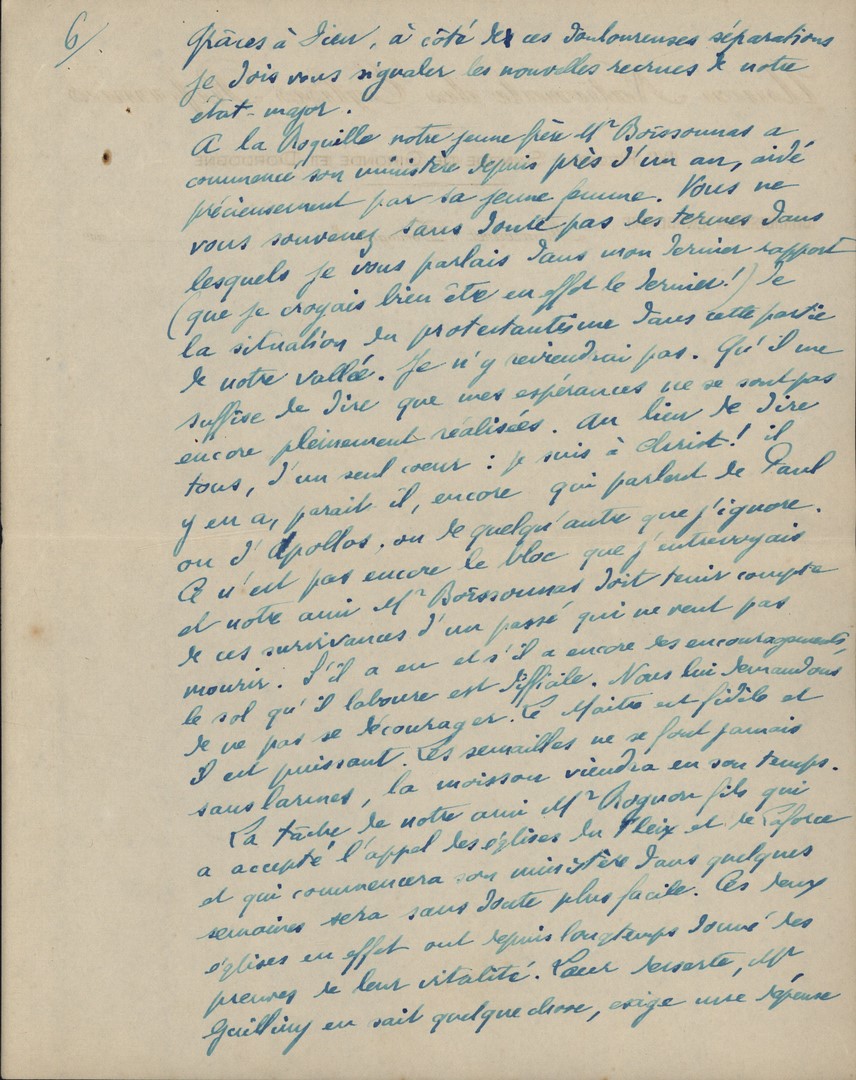 6/
Grâces à Dieu, à côté de ces douloureuses séparations
je dois vous signaler les nouvelles recrues de notre
état-major.
A la Roquille notre jeune frère Mr Boissonnas a
commencé son ministère depuis près d'un an, aidé
précieusement par sa jeune femme. Vous ne
vous souvenez sans doute pas des termes dans
lesquels je vous parlais dans mon dernier rapport
(que je croyais bien être en effet le dernier!) de
la situation du protestantisme dans cette partie
de notre vallée. Je n'y reviendrai pas. Qu'il me
suffise de dire que mes espérances ne se sont pas
encore pleinement réalisées. Au lieu de dire
tous, d'un seul coeur : je suis à Christ! il
y en a, parait-il, encore qui parlent de Paul
ou d'Apollos, ou de quelqu'autre que j'ignore.
Ce n'est pas encore le bloc que j'entrevoyais
et notre ami Mr Boissonnas doit tenir compte
de ces survivances d'un passé qui ne veut pas
mourir. S'il a eu et s'il a encore des encouragements,
le sol qu'il laboure est difficile. Nous lui demandons
de ne pas se décourager. Le Maître est fidèle et
il est puissant. Les semailles ne se font jamais
sans larmes, la moisson viendra en son temps.
La tâche de notre ami Mr Rognon fils qui
a accepté l'appel des églises du Fleix et de Laforce
et qui commencera son ministère dans quelques
semaines sera sans doute plus facile. Ces deux
églises en effet ont depuis longtemps donné des
preuves de leur vitalité. Leur desserte, Mr
en sait quelque chose, exige une dépense